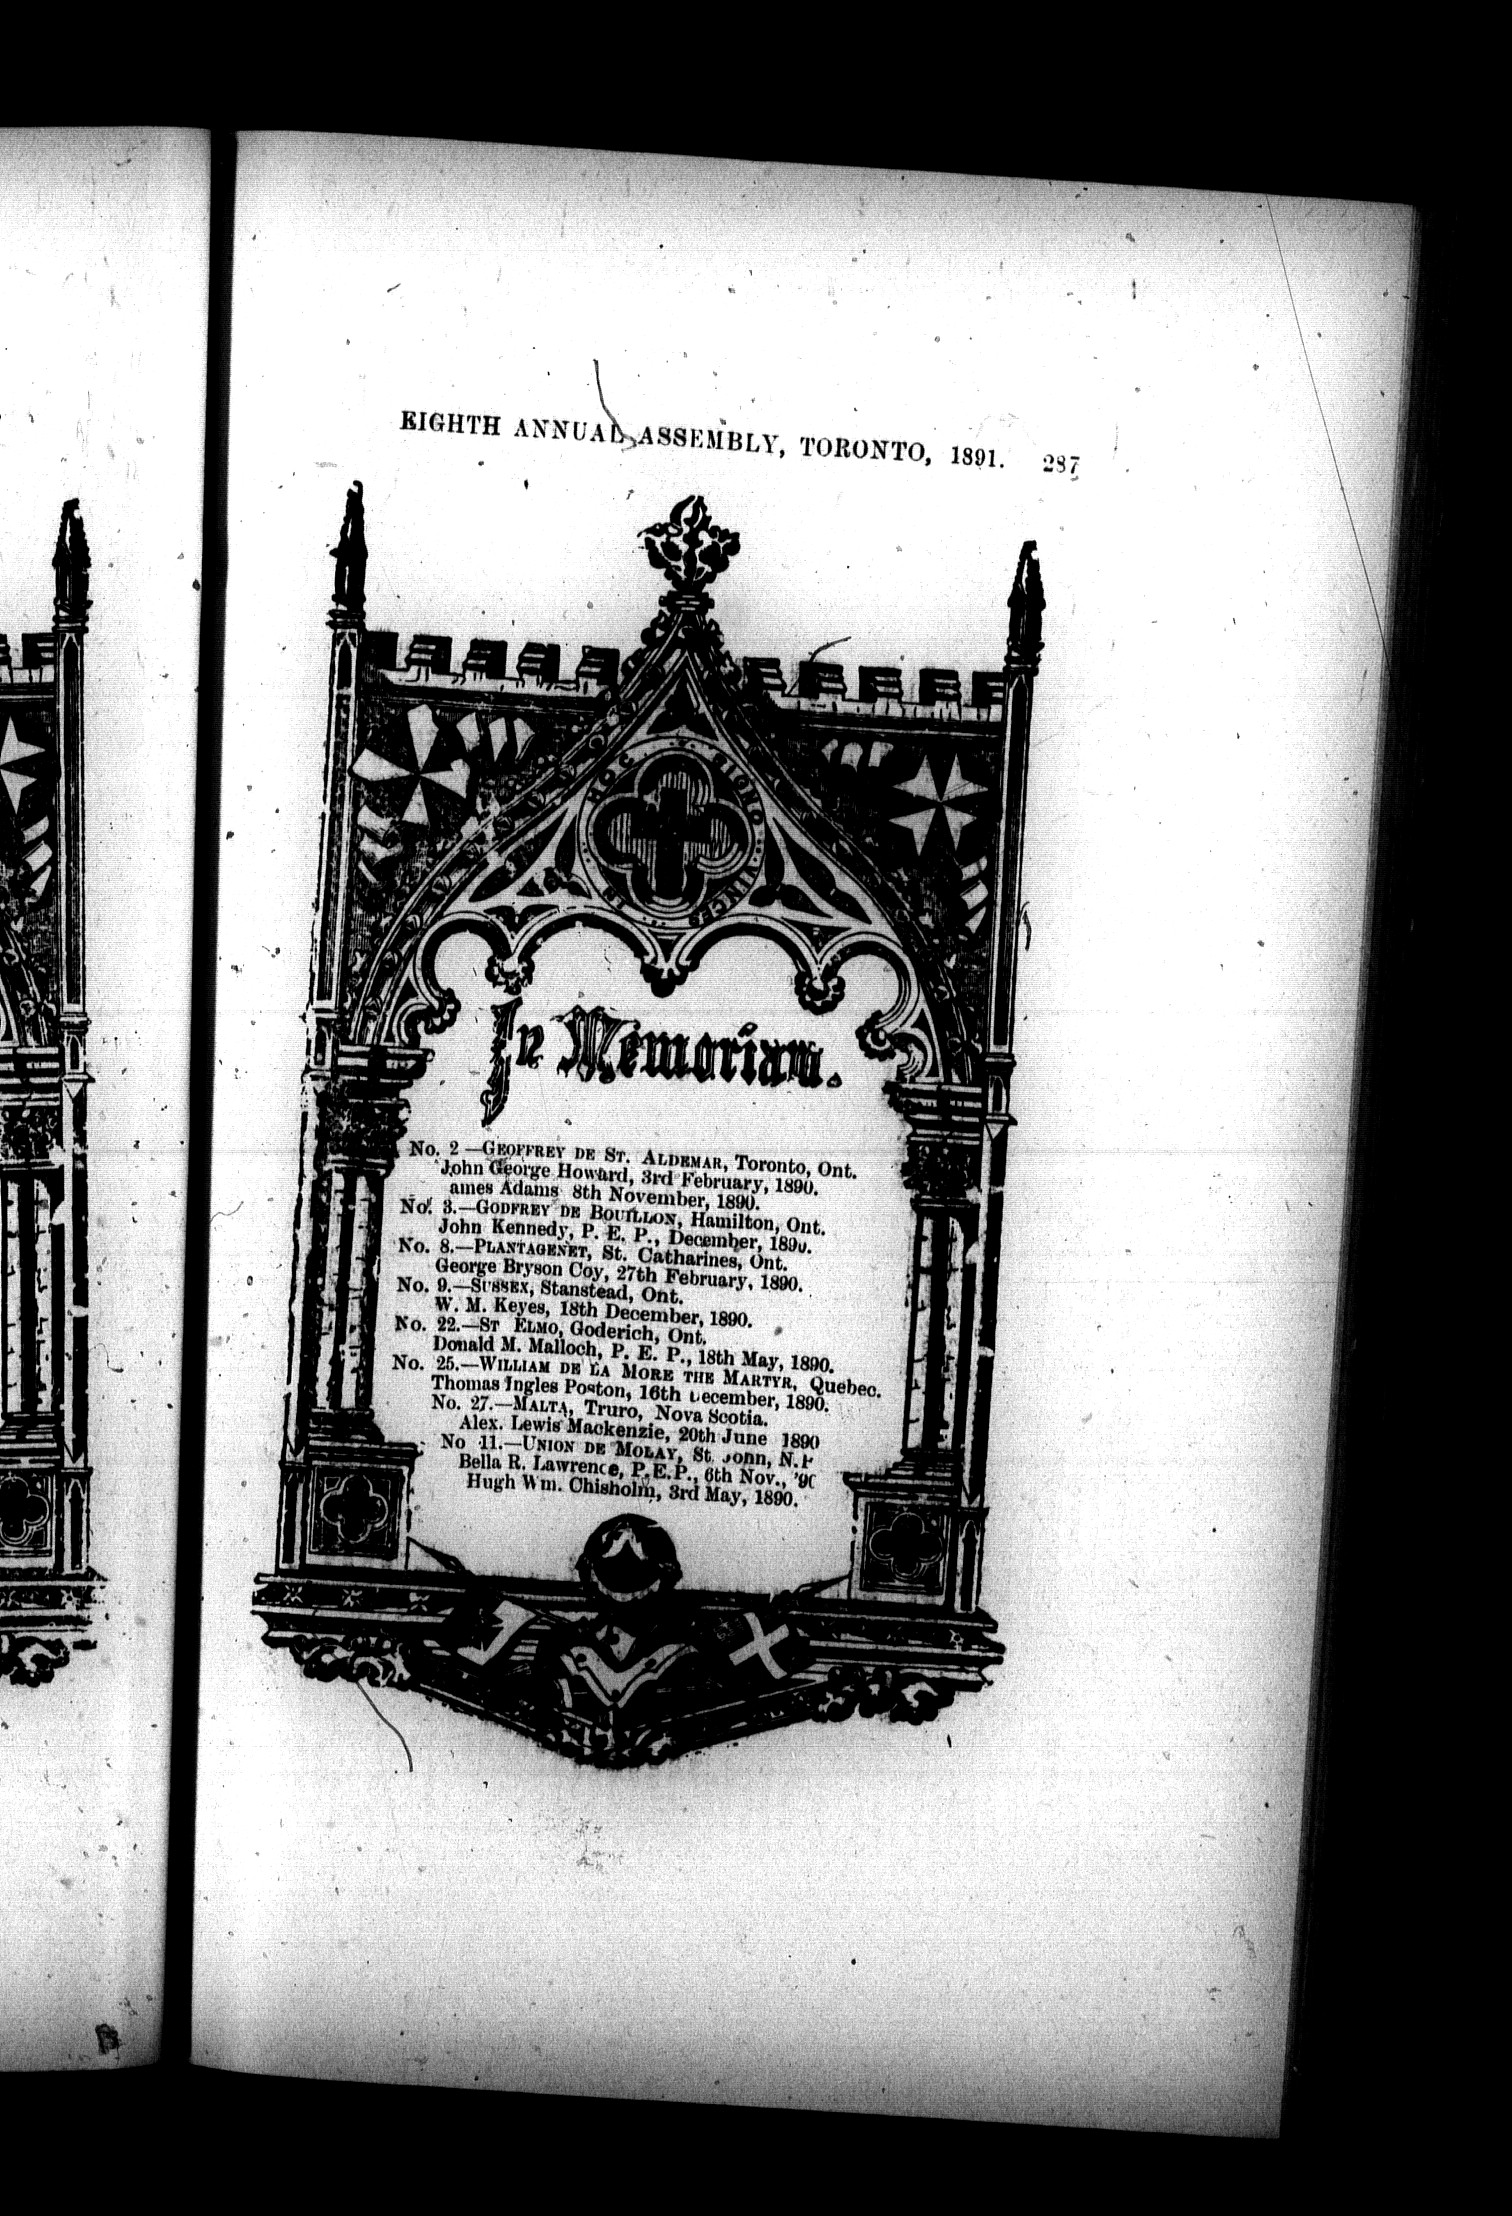 EIGHTH ANNUAL ASSEMBLY, TORONTO, 1891. 287
HOC SIGNO VINCES IN
In Memoriam.
No. 2 —GEOFFREY DE ST. ALDEMAR, Toronto, Ont.
John George Howard, 3rd February, 1890.
ames Adams 8th November, 1890.
No. 3.—GODFREY DE BOUILLON, Hamilton, Ont.
John Kennedy, P. E. P., December, 1890.
No. 8.—PLANTAGENET, St. Catharines, Ont.
George Bryson Coy, 27th February, 1890.
No. 9.—SUSSEX, Stanstead, Ont.
W. M. Keyes, 18th December, 1890.
No. 22.—ST ELMO, Goderich, Ont.
Donald M. Malloch, P. E. P., 18th May, 1890.
No. 25.—WILLIAM DE LA MORE THE MARTYR, Quebec.
Thomas Ingles Poston, 16th December, 1890.
No. 27.—MALTA, Truro, Nova Scotia.
Alex. Lewis Mackenzie, 20th June 1890
No 11.—UNION DE MOLAY, St. John, N.
Bella R. Lawrence, P.E.P., 6th Nov., '90
Hugh Wm. Chisholm, 3rd May, 1890.